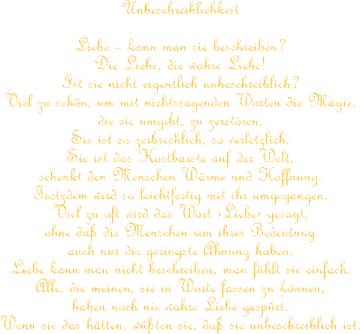 Unbeschreiblichkeit
Liebe – kann man sie beschreiben?
Die Liebe, die wahre Liebe!
Ist sie nicht eigentlich unbeschreiblich?
Viel zu schön, um mit nichtssagenden Worten die Magie,
die sie umgibt, zu zerstören.
Sie ist so zerbrechlich, so verletzlich.
Sie ist das Kostbarste auf der Welt,
schenkt den Menschen Wärme und Hoffnung.
Trotzdem wird so leichtfertig mit ihr umgegangen.
Viel zu oft wird das Wort ›Liebe‹ gesagt,
ohne daß die Menschen von ihrer Bedeutung
auch nur die geringste Ahnung haben.
Liebe kann man nicht beschreiben, man fühlt sie einfach.
Alle, die meinen, sie in Worte fassen zu können,
haben noch nie wahre Liebe gespürt.
Wenn sie das hätten, wüßten sie, daß sie unbeschreiblich ist.